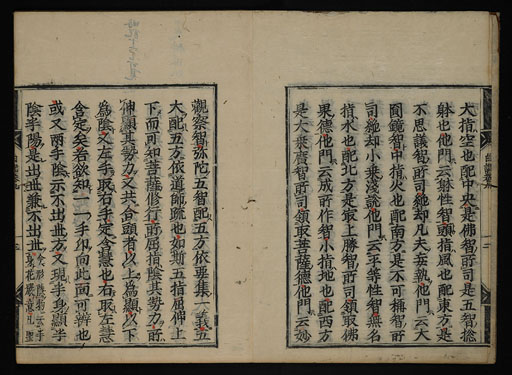 大指空也配中央是佛智所司是五智惣
躰也他門云躰性智頭指風也配東方是
不思議智所司絶却凡夫妄執他門云大
圓鏡智中指火也配南方是不可稱智所
司絶却小乗淺説他門云平等性智無名
指水也配北方是最上勝智所司領取佛
果德他門云成所作智小指地也配西方
是大乘廣智所司領取菩薩德他門云妙
觀察智弥陀五智配五方依要集一義五
大配五方依道師疏也如斯五指屈伸上
下而可知菩薩修行所屈指陰其勢力所
伸顯其勢力又共合頭者以上為顯以下
為陰又左手取右手定含慧也右取左慧
含定矣若欲知一一手印向此面可辨也
或又兩手陰示不出世方又現手身顯手
陰手陽是出世兼不出世